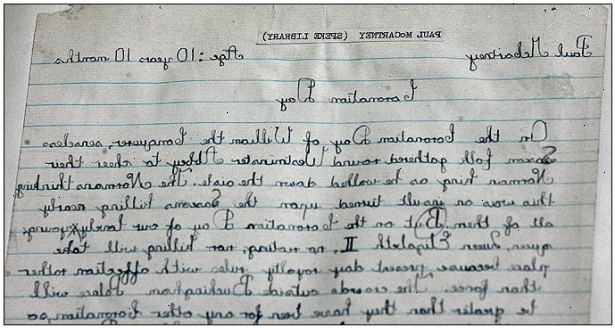 PAUL McCARTNEY (SPEKE LIBRARY)
Paul McCartney Age: 10 years 10 months
Coronation Day
On the Coronation Day of William the Conquerer, senseless
Saxon folk gathered round Westminster Abbey to cheer their
Norman king as he walked down the aisle. The Normans thinking
this was an insult turned upon the Saxons killing nearly
all of them. But on the Coronation Day of our lovely young
queen, Queen Elizabeth II, no rioting nor killing will take
place because present day royalty rule with affection rather
than force. The crowds outside Buckingham Palace will
be greater than they have been for any other Coronation, so